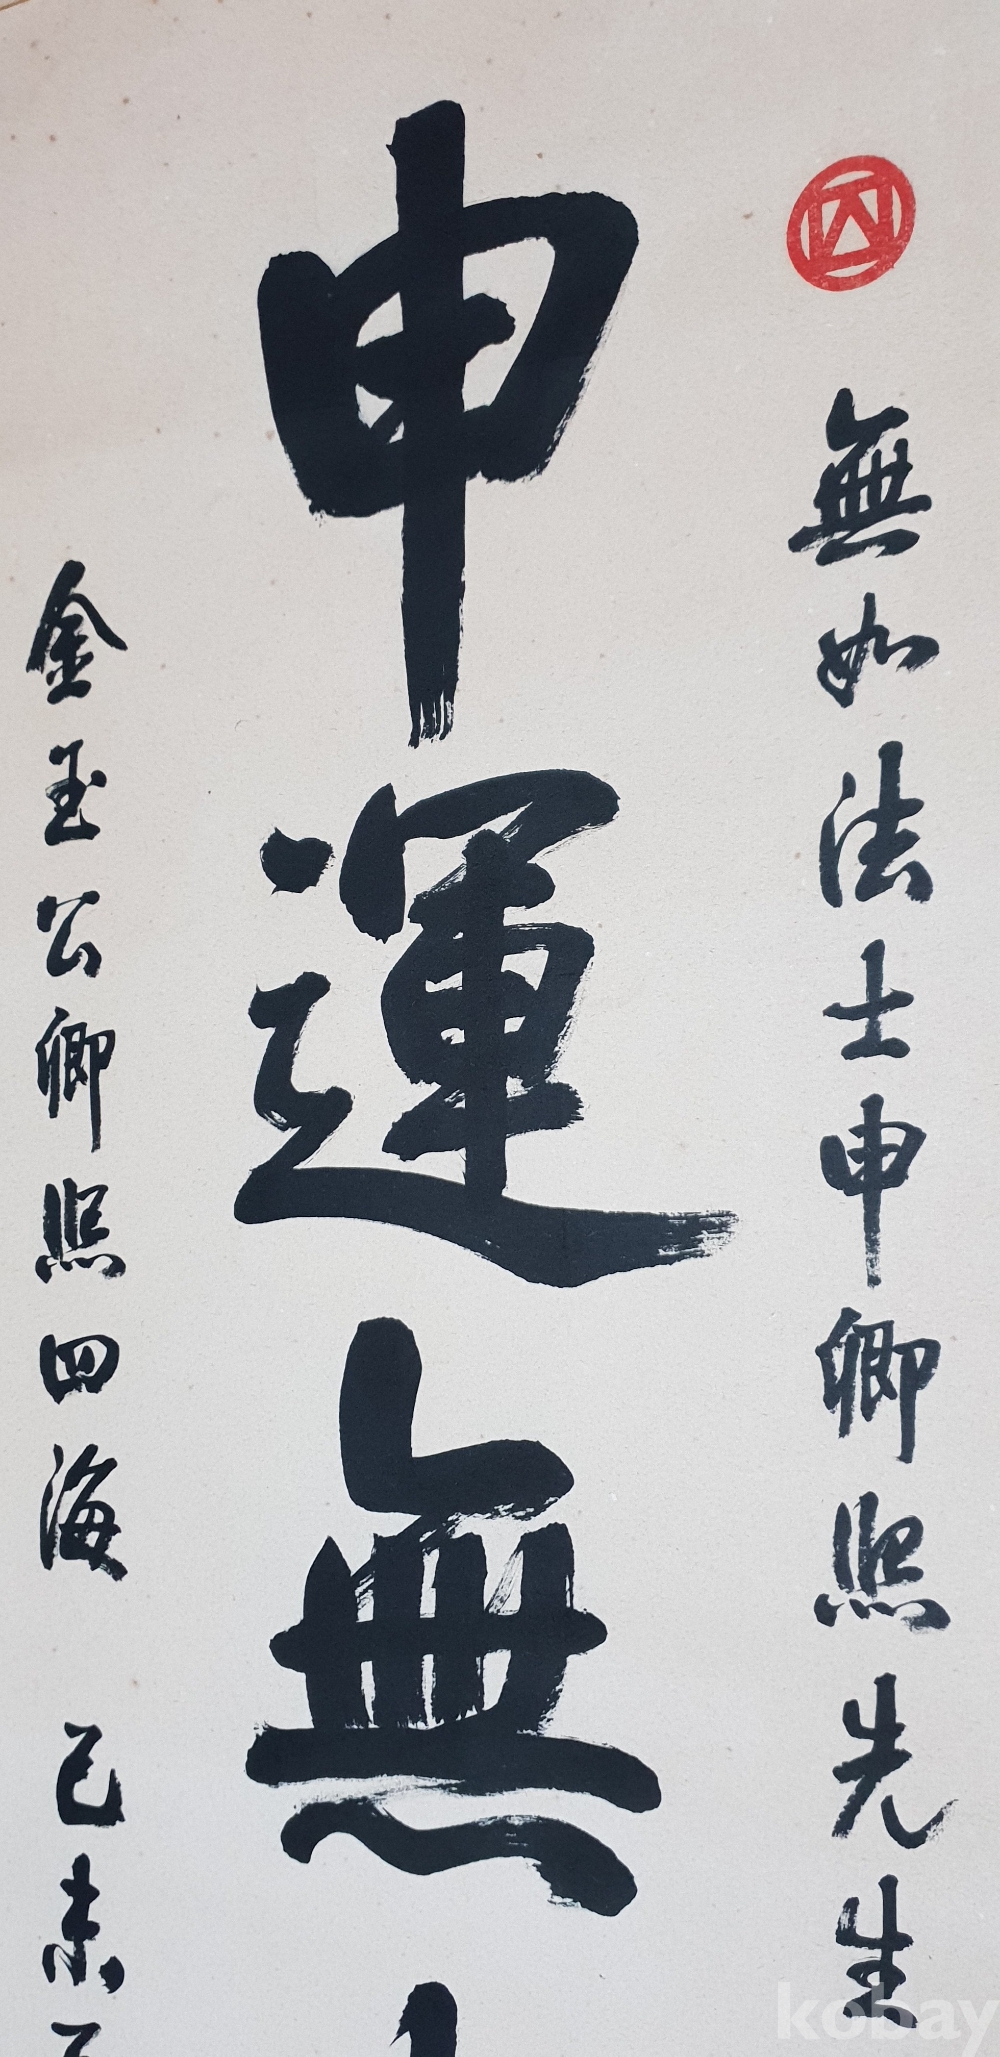 無如法士申卿熙先生
申運無
金玉公卿熙四海 己未
kobay